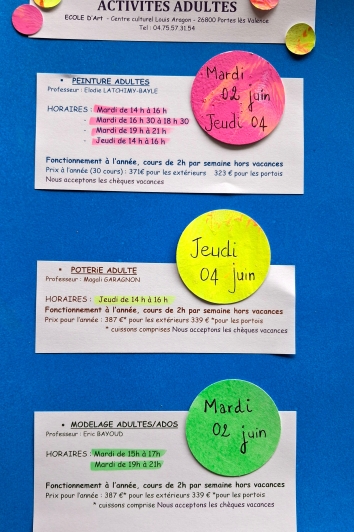 ACTIVITÉS ADULTES
ECOLE D'Art - Centre culturel Louis Aragon - 26800 Portes lès Valence
Tel : 04.75.57.31.54
• PEINTURE ADULTES
Professeur : Elodie LATCHIMY-BAYLE
Mardi
02 juin
Jeudi 04
HORAIRES : - Mardi de 14 h à 16 h
- Mardi de 16 h 30 à 18 h 30
- Mardi de 19 h à 21 h
- Jeudi de 14 h à 16 h
Fonctionnement à l'année, cours de 2h par semaine hors vacances
Prix à l'année (30 cours) : 371€ pour les extérieurs 323 € pour les portois
Nous acceptons les chèques vacances
Jeudi
04 juin
• POTERIE ADULTE
Professeur : Magali GARAGNON
HORAIRES : Jeudi de 14 h à 16 h
Fonctionnement à l'année, cours de 2h par semaine hors vacances
Prix pour l'année : 387 €* pour les extérieurs 339 €*pour les portois
* cuissons comprises Nous acceptons les chèques vacances
Mardi
02 juin
• MODELAGE ADULTES/ADOS
Professeur : Eric BAYOUD
HORAIRES : Mardi de 15h à 17h
Mardi de 19h à 21h
Fonctionnement à l'année, cours de 2h par semaine hors vacances
Prix pour l'année : 387 €* pour les extérieurs 339 €*pour les portois
* cuissons comprises Nous acceptons les chèques vacances